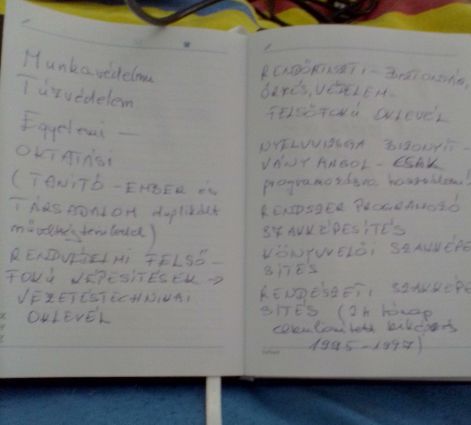 Munkavédelmi
Tűzvédelem
Egyetemi —
OKTATÁSI
(TANÍTÓ - EMBER és
TÁRSADALOM
RENDVÉDELMI FELSŐ-
FOKÚ KÉPESÍTÉSEK →
VEZETÉSTECHNIKAI
OKLEVÉL
RENDÉSZETI - BIZTONSÁGI,
ŐRZÉS, VÉDELEM -
FELSŐFOKÚ OKLEVÉL
NYELVVIZSGA BIZONYÍT-
VÁNY ANGOL - CSAK
programozásra
RENDSZER PROGRAMOZÓ
SZAKKÉPESÍTÉS
KÖNYVELŐI SZAKKÉPE
SÍTÉS
RENDÉSZETI SZAKKÉPE
SÍTÉS (24 hónap
1995-1997)